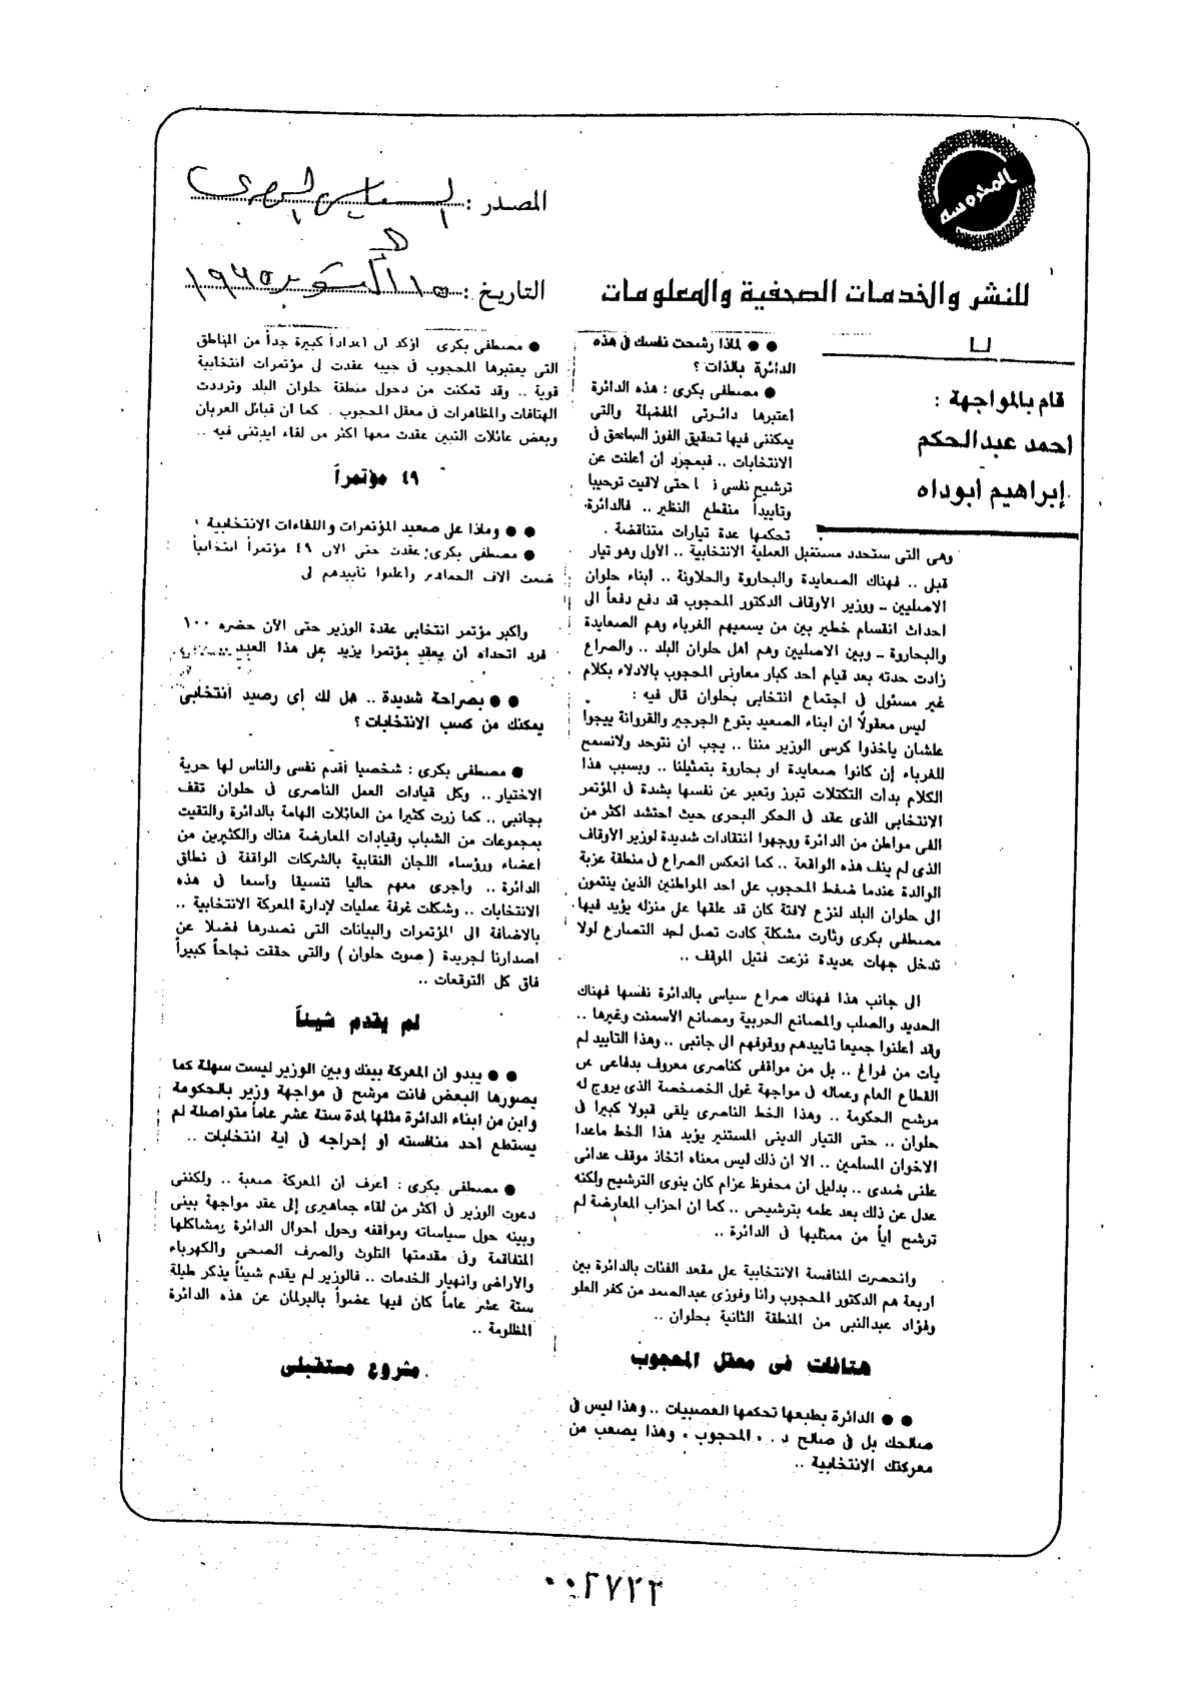 المحروسة
المصدر :
السياسي المصري
للنشر والخدمات الصحفية والمعلومات
التاريخ :
١٥ أكتوبر
قام بالمواجهة :
احمد عبدالحكم
إبراهيم أبوداه
●● لماذا رشحت نفسك فى هذه
الدائرة بالذات ؟
● مصطفى بكرى : هذه الدائرة
اعتبرها دائرتى المفضلة والتى
يمكننى فيها تحقيق الفوز الساحق فى
الانتخابات .. فبمجرد أن أعلنت عن
ترشيح نفسى حتى لاقيت ترحيبا
وتأييداً منقطع النظير .. فالدائرة
تحكمها عدة تيارات متناقضة .
وهى التى ستحدد مستقبل العملية الانتخابية .. الأول وهو تيار
قبلى .. فهناك الصعايدة والبحاروة والحلاونة .. أبناء حلوان
الاصليين ـ ووزير الأوقاف الدكتور المحجوب قد دفع دفعاً الى
احداث انقسام خطير بين من يسميهم الغرباء وهم الصعايدة
والبحاروة ـ وبين الاصليين وهم اهل حلوان البلد .. والصراع
زادت حدته بعد قيام أحد كبار معاونى المحجوب بالادلاء بكلام
غير مسئول فى اجتماع انتخابى بحلوان قال فيه :
ليس معقولاً ان ابناء الصعيد بتوع الجرجير والقروانة ييجوا
علشان ياخذوا كرسى الوزير مننا .. يجب ان نتوحد ولانسمح
للغرباء إن كانوا صعايدة او بحاروة بتمثيلنا .. وبسبب هذا
الكلام بدأت التكتلات تبرز وتعبر عن نفسها بشدة فى المؤتمر
الانتخابى الذى عقد فى الحكر البحرى حيث احتشد اكثر من
الفى مواطن من الدائرة ووجهوا انتقادات شديدة لوزير الأوقاف
الذى لم ينف هذه الواقعة .. كما انعكس الصراع فى منطقة عزبة
الوالدة عندما ضغط المحجوب على احد المواطنين الذين ينتمون
الى حلوان البلد لنزع لافتة كان قد علقها على منزله يؤيد فيها
مصطفى بكرى وثارت مشكلة كادت تصل لحد التصارع لولا
تدخل جهات عديدة نزعت فتيل الموقف ..
الى جانب هذا فهناك صراع سياسى بالدائرة نفسها فهناك
الحديد والصلب والمصانع الحربية ومصانع الأسمنت وغيرها ..
وقد أعلنوا جميعا تأييدهم ووقوفهم الى جانبى .. وهذا التأييد لم
يأت من فراغ .. بل من مواقفى كناصرى معروف بدفاعى عن
القطاع العام وعماله فى مواجهة غول الخصخصة الذى يروج له
مرشح الحكومة .. وهذا الخط الناصرى يلقى قبولا كبيرا فى
حلوان .. حتى التيار الدينى المستنير يؤيد هذا الخط ماعدا
الاخوان المسلمين .. الا ان ذلك ليس معناه اتخاذ موقف عدائى
علنى ضدى .. بدليل ان محفوظ عزام كان ينوى الترشيح ولكنه
عدل عن ذلك بعد علمه بترشيحى .. كما ان احزاب المعارضة لم
ترشح اياً من ممثليها فى الدائرة ..
وانحصرت المنافسة الانتخابية على مقعد الفئات بالدائرة بين
اربعة هم الدكتور المحجوب وانا وفوزى عبدالصمد من كفر العلو
وفؤاد عبدالنبى من المنطقة الثانية بحلوان ..
هتافات فى معقل المحجوب
●● الدائرة بطبعها تحكمها العصبيات .. وهذا ليس فى
صالحك بل فى صالح د . المحجوب ، وهذا يصعب من
معركتك الإنتخابية ..
● مصطفى بكرى اؤكد ان اعداداً كبيرة جداً من المناطق
التى يعتبرها المحجوب فى جيبه عقدت لى مؤتمرات انتخابية
قوية .. وقد تمكنت من دخول منطقة حلوان البلد وترددت
الهتافات والمظاهرات فى معقل المحجوب . كما ان قبائل العربان
وبعض عائلات التبين عقدت معها اكثر من لقاء ايدتنى فيه ..
٤٩ مؤتمراً
●● وماذا على صعيد المؤتمرات واللقاءات الإنتخابية
● مصطفى بكرى: عقدت حتى الآن ٤٩ مؤتمراً انتخابياً
ضمت آلاف الجماهير وأعلنوا تأييدهم لى
وأكبر مؤتمر انتخابى عقدة الوزير حتى الآن حضره ١٠٠
فرد اتحداه أن يعقد مؤتمرا يزيد على هذا العدد
●● بصراحة شديدة .. هل لك أى رصيد انتخابى
يمكنك من كسب الانتخابات ؟
● مصطفى بكرى : شخصيا أقدم نفسى والناس لها حرية
الاختيار .. وكل قيادات العمل الناصرى فى حلوان تقف
بجانبى .. كما زرت كثيرا من العائلات الهامة بالدائرة والتقيت
بمجموعات من الشباب وقيادات المعارضة هناك والكثيرين من
اعضاء ورؤساء اللجان النقابية بالشركات الواقعة فى نطاق
الدائرة .. وأجرى معهم حاليا تنسيقا وأسعا فى هذه
الانتخابات .. وشكلت غرفة عمليات لإدارة المعركة الانتخابية ..
بالاضافة الى المؤتمرات والبيانات التى نصدرها فضلا عن
اصدارنا لجريدة ( صوت حلوان ) والتى حققت نجاحاً كبيراً
فاق كل التوقعات ..
لم يقدم شيئاً
●● يبدو ان المعركة بينك وبين الوزير ليست سهلة كما
يصورها البعض فانت مرشح فى مواجهة وزير بالحكومة
وابن من أبناء الدائرة مثلها لمدة ستة عشر عاماً متواصلة لم
يستطع أحد منافسته أو إحراجه فى اية انتخابات ..
● مصطفى بكرى : أعرف أن المعركة صعبة .. ولكننى
دعوت الوزير فى أكثر من لقاء جماهيرى إلى عقد مواجهة بينى
وبينه حول سياساته ومواقفه وحول أحوال الدائرة ومشاكلها
المتفاقمة وفى مقدمتها التلوث والصرف الصحى والكهرباء
والأراضى وانهيار الخدمات .. فالوزير لم يقدم شيئاً يذكر طيلة
ستة عشر عاماً كان فيها عضواً بالبرلمان عن هذه الدائرة
المظلومة ..
مشروع مستقبلى
٠٠٢٧٢٣